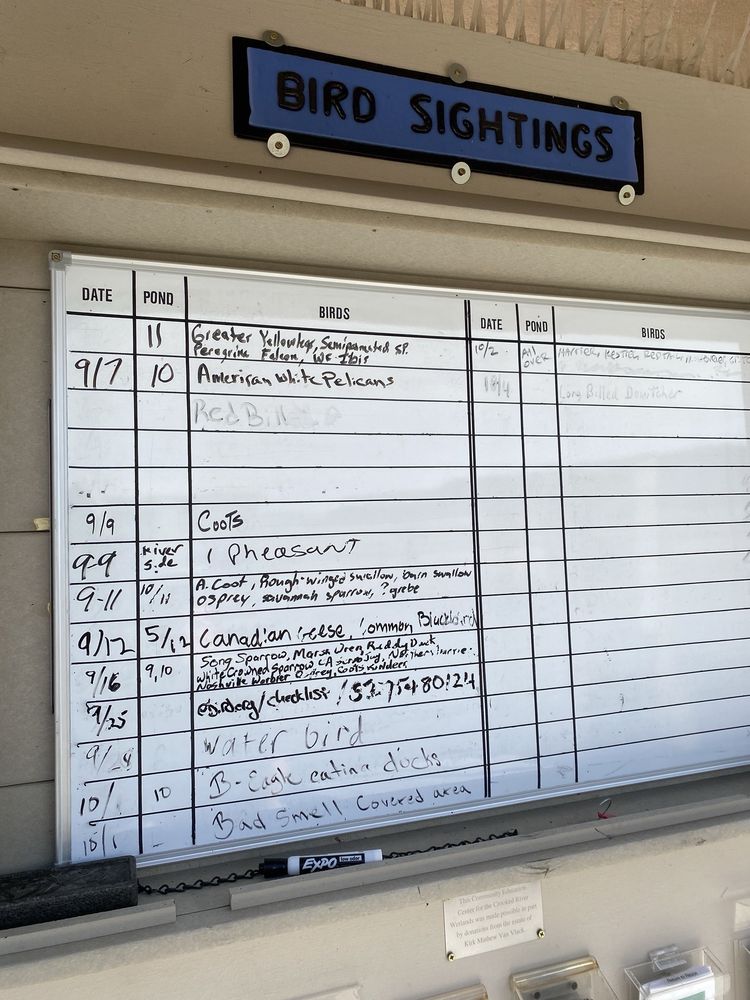 BIRD SIGHTINGS
DATE POND BIRDS
11 Greater Yellowlegs, Semipalmated SP.
Peregrine Falcon, WF Ibis
9/7 10 American White Pelicans
Red Bill
9/9 Coots
9-9 River Side 1 Pheasant
9-11 10/11 A. Coot, Rough-winged swallow, barn swallow
osprey, savannah sparrow, ? grebe
9/12 5/12 Canadian Geese, Common Blackbird
9/16 9,10 Song Sparrow, Marsh Wren, Ruddy Duck
White Crowned Sparrow, CA Scrub Jay, Northern Harrier
Nashville Warbler Osprey, Coots
9/25 ebird.org/checklist/
water bird
10/1 10 B-Eagle eating ducks
10/1 Bad Smell Covered area
DATE POND BIRDS
10/2 All over Harrier, Kestrel, Red Tail
10/4 Long Billed Dowitcher
EXPO low odor
This Community Education
Center for the Crooked River
Wetlands was made possible in part
by donations from the estate of
Kirk Mathew Van Vlack.